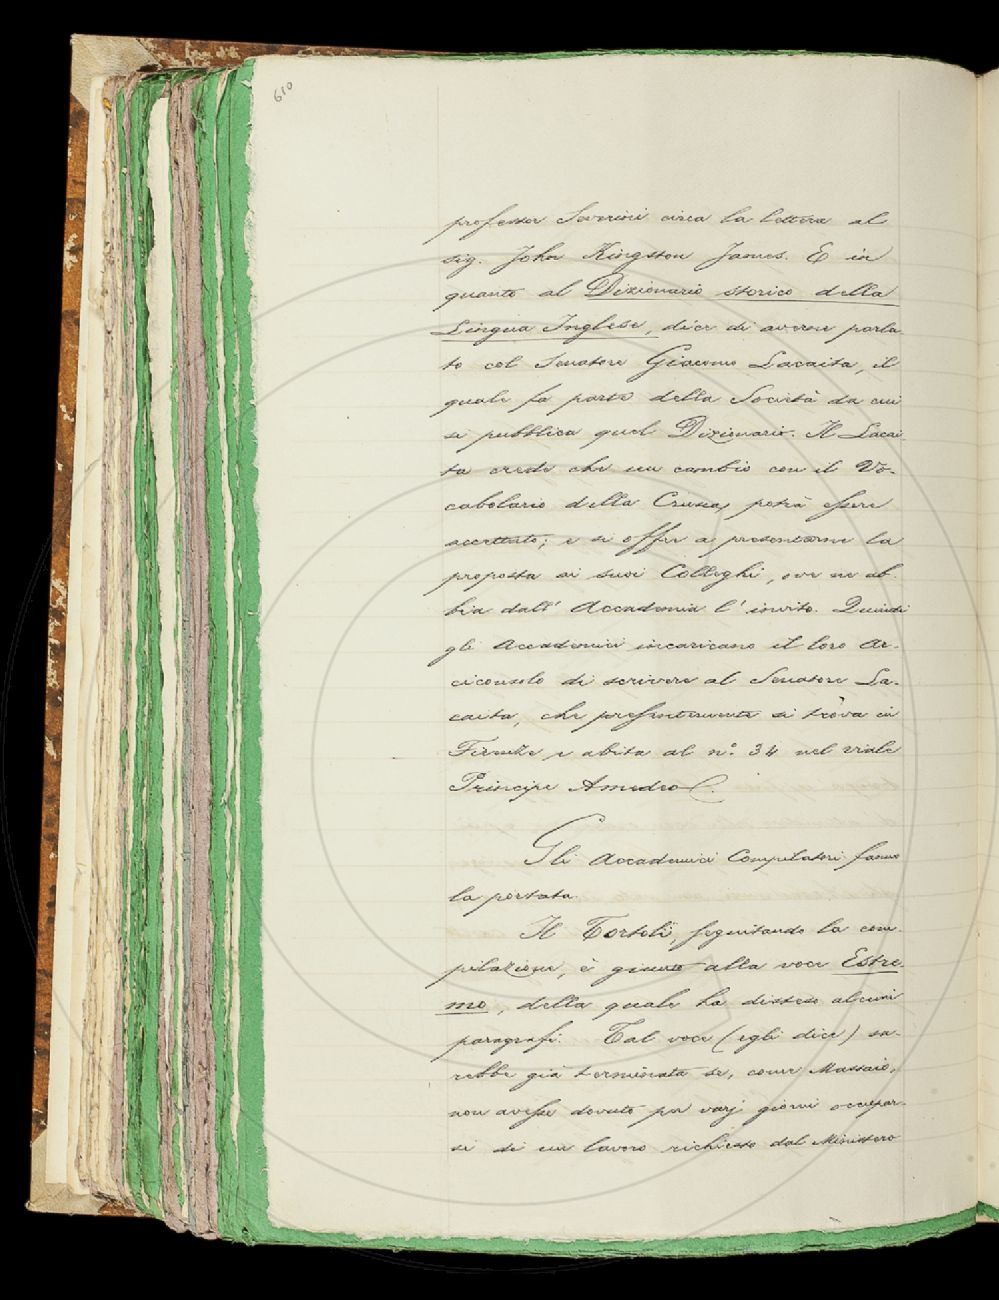 610
professor Severini circa la lettera al
sig. John Kingston James. E in
quanto al Dizionario storico della
Lingua Inglese, dice di averne parla
to col Senatore Giacomo Lacaita, il
quale fa parte della Società da cui
si pubblica quel Dizionario. Il Lacai
ta crede che un cambio con il Vo-
cabolario della Crusca, potrà essere
accettato; e si offre a presentarne la
proposta ai suoi Colleghi, ove ne ab
bia dall' Accademia l' invito. Quindi
gli Accademici incaricano il loro Ar-
ciconsolo di scrivere al Senatore La-
caita, che presentemente si trova in
Firenze e abita al n.º 34 nel viale
Principe Amedeo.
Gli Accademici Compilatori fanno
la portata.
Il Tortoli, seguitando la com-
pilazione, è giunto alla voce Estre-
mo, della quale ha disteso alcuni
paragrafi. Tal voce (egli dice) sa-
rebbe già terminata se, come Massaio,
non avesse dovuto per varj giorni occupar-
si di un lavoro richiesto dal Ministero